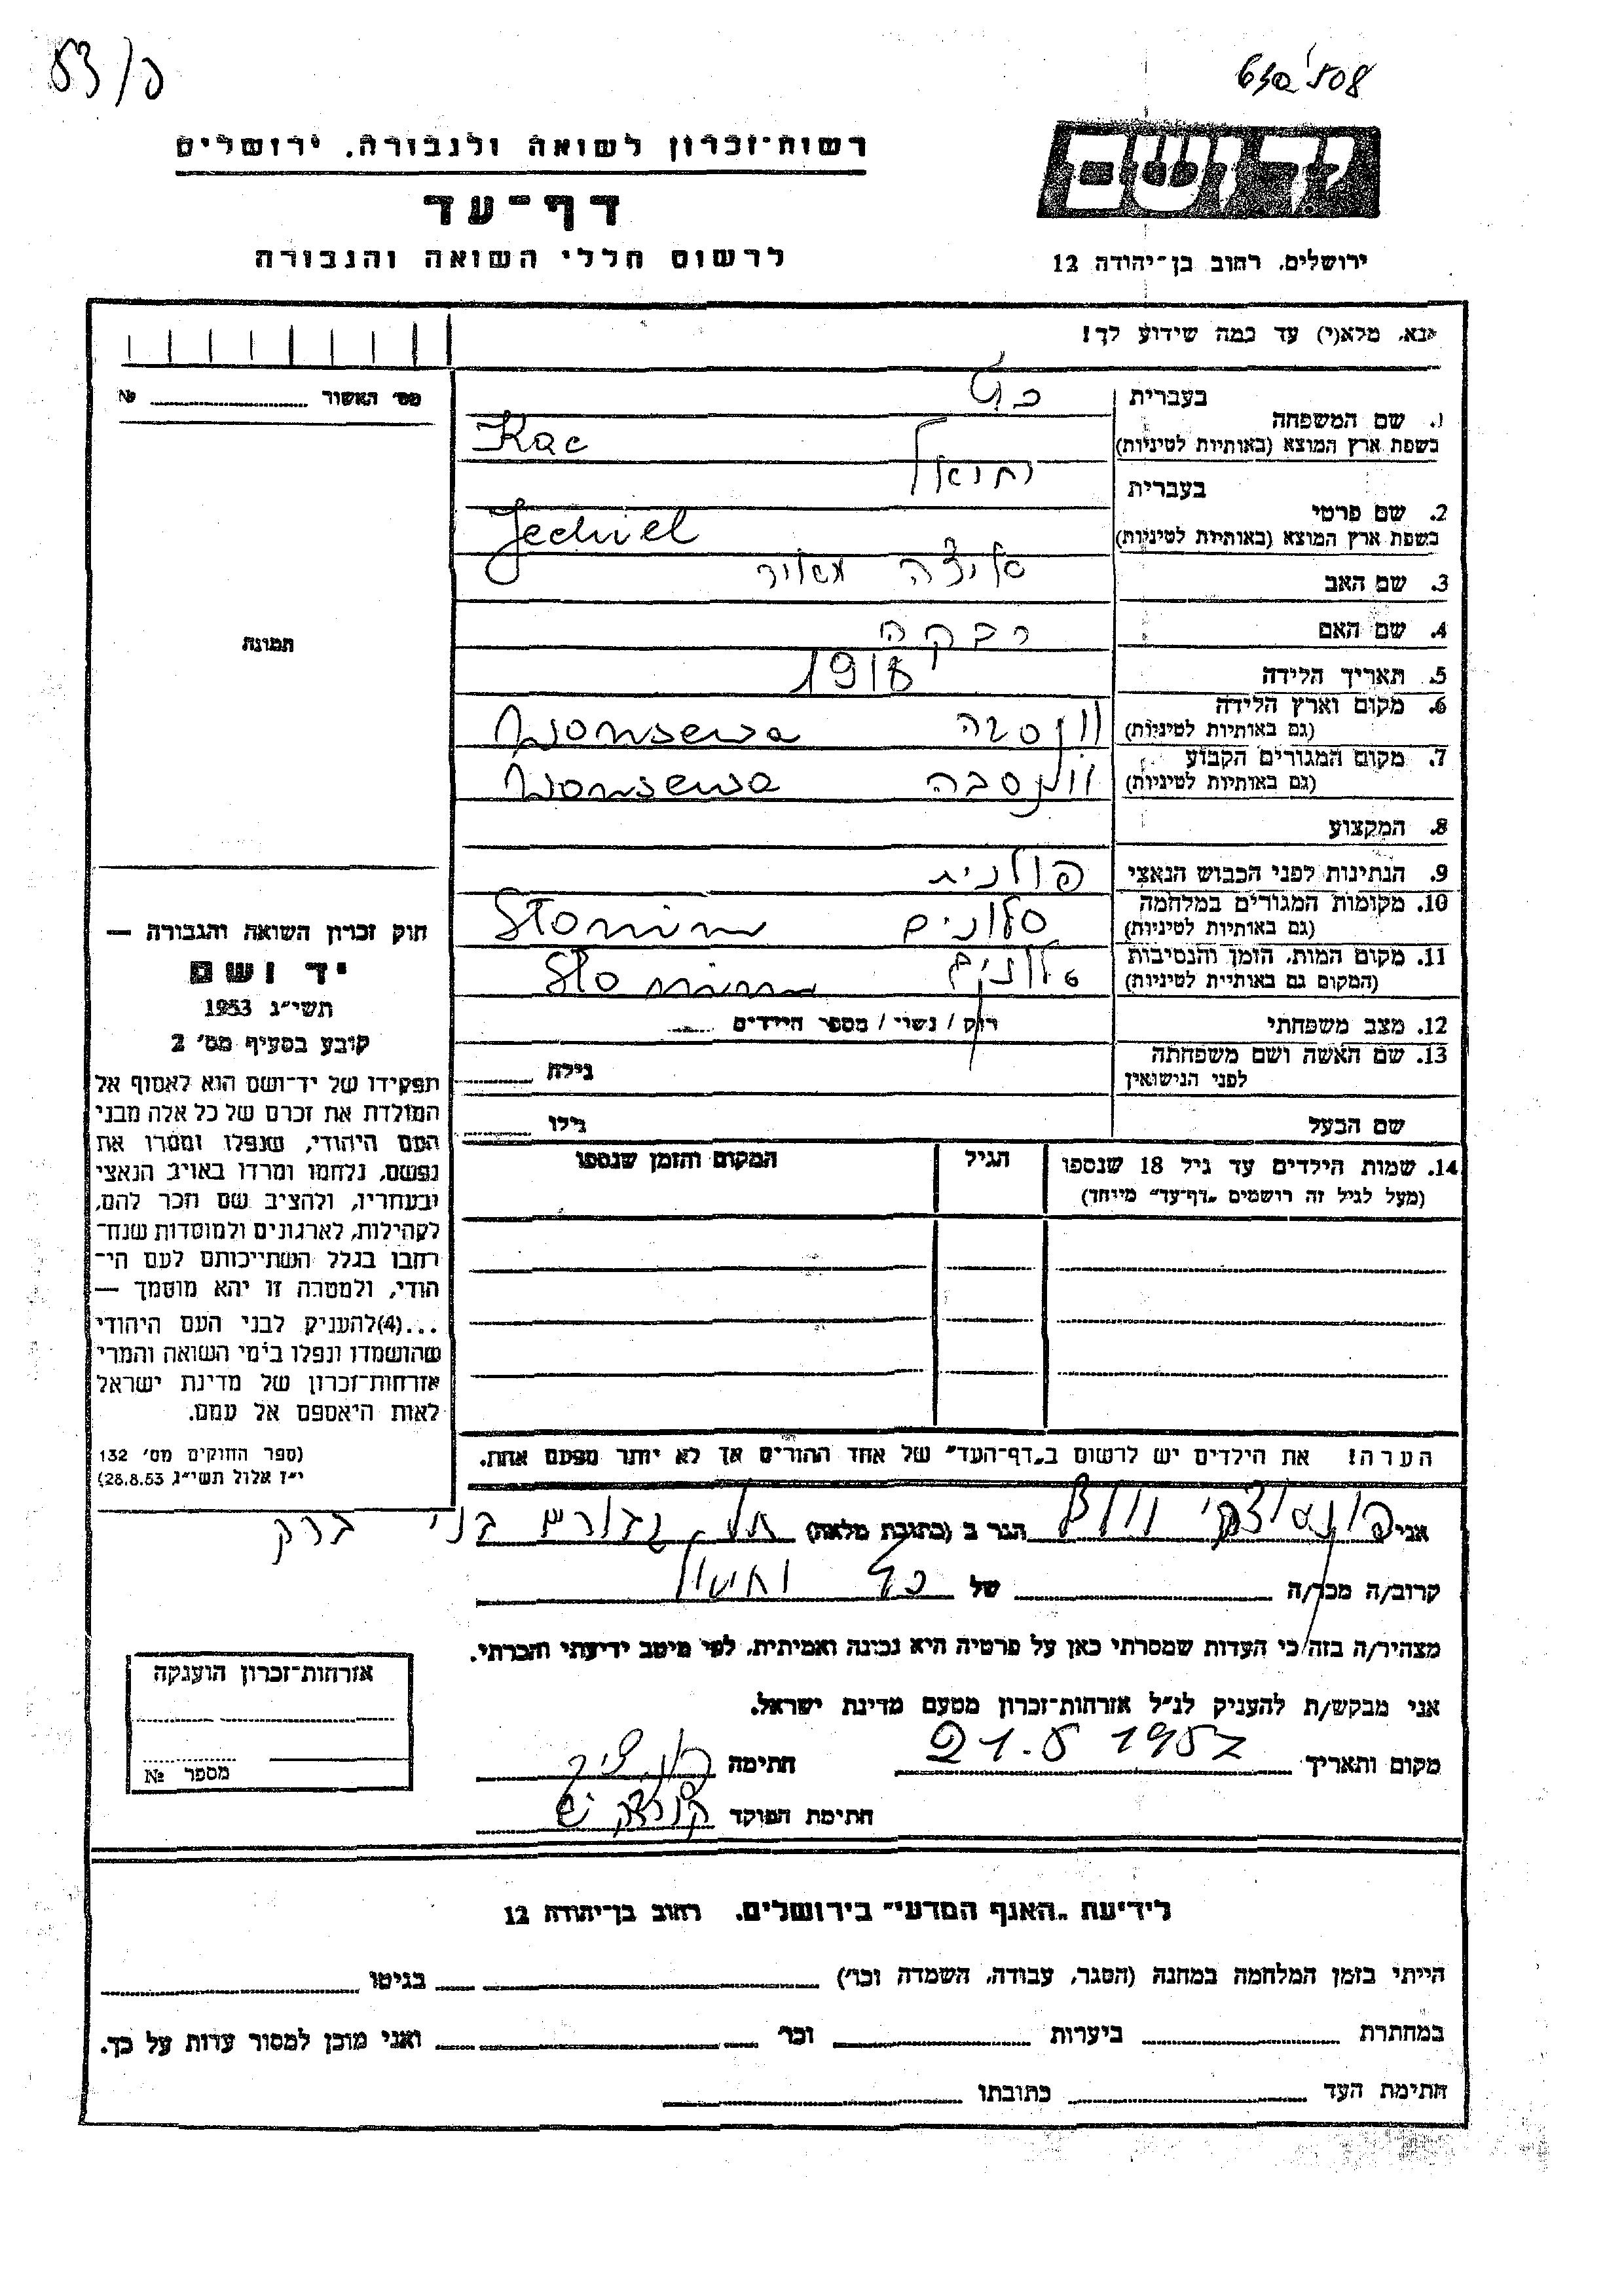 פ/53
630/508
רשות־זכרון לשואה ולגבורה, ירושלים
ידושם
דף־עד
לרשום חללי השואה והגבורה
ירושלים, רחוב בן־יהודה 12
אנא, מלא(י) עד כמה שידוע לך!
מס׳ האשור №
1. שם המשפחה בעברית כץ
בשפת ארץ המוצא (באותיות לטיניות) Kac
2. שם פרטי בעברית יחיאל
בשפת ארץ המוצא (באותיות לטיניות) Jechiel
3. שם האב
4. שם האם רבקה
5. תאריך הלידה 1918
6. מקום וארץ הלידה (גם באותיות לטיניות) Wonsewa
7. מקום המגורים הקבוע (גם באותיות לטיניות) וונסבה Wonsewa
8. המקצוע
9. הנתינות לפני הכבוש הנאצי פולנית
10. מקומות המגורים במלחמה (גם באותיות לטיניות) סלונים Slonim
11. מקום המות, הזמן והנסיבות (המקום גם באותיות לטיניות) סלונים Slonim
12. מצב משפחתי רוק / נשוי / מספר הילדים
13. שם האשה ושם משפחתה לפני הנישואין גילה
שם הבעל גילו
14. שמות הילדים עד גיל 18 שנספו הגיל המקום והזמן שנספו
(מעל לגיל זה רושמים „דף־עד״ מיוחד)
הערה! את הילדים יש לרשום ב„דף־העד״ של אחד ההורים אך לא יותר מפעם אחת.
תמונה
חוק זכרון השואה והגבורה —
יד ושם
תשי״ג 1953
קובע בסעיף מס׳ 2
תפקידו של יד־ושם הוא לאסוף אל
המולדת את זכרם של כל אלה מבני
העם היהודי, שנפלו ומסרו את
נפשם, נלחמו ומרדו באויב הנאצי
ובעוזריו, ולהציב שם וזכר להם,
לקהילות, לארגונים ולמוסדות שנח־
רבו בגלל השתייכותם לעם הי־
הודי, ולמטרה זו יהא מוסמך —
...(4)להעניק לבני העם היהודי
שהושמדו ונפלו בימי השואה והמרי
אזרחות־זכרון של מדינת ישראל
לאות היאספם אל עמם.
(ספר החוקים מס׳ 132
י״ז אלול תשי״ג 28.8.53)
אני הגר ב (כתובת מלאה) תל גבורים בני ברק
קרוב/ה מכר/ה של כץ יחיאל
מצהיר/ה בזה כי העדות שמסרתי כאן על פרטיה היא נכונה ואמיתית, לפי מיטב ידיעתי והכרתי.
אני מבקש/ת להעניק לנ״ל אזרחות־זכרון מטעם מדינת ישראל.
מקום ותאריך 21.5 1957 חתימה
חתימת הפוקד
אזרחות־זכרון הוענקה
מספר №
לידיעת „האגף המדעי״ בירושלים, רחוב בן־יהודה 12
הייתי בזמן המלחמה במחנה (הסגר, עבודה, השמדה וכו׳) בגיטו
במחתרת ביערות וכו׳ ואני מוכן למסור עדות על כך.
חתימת העד כתובתו